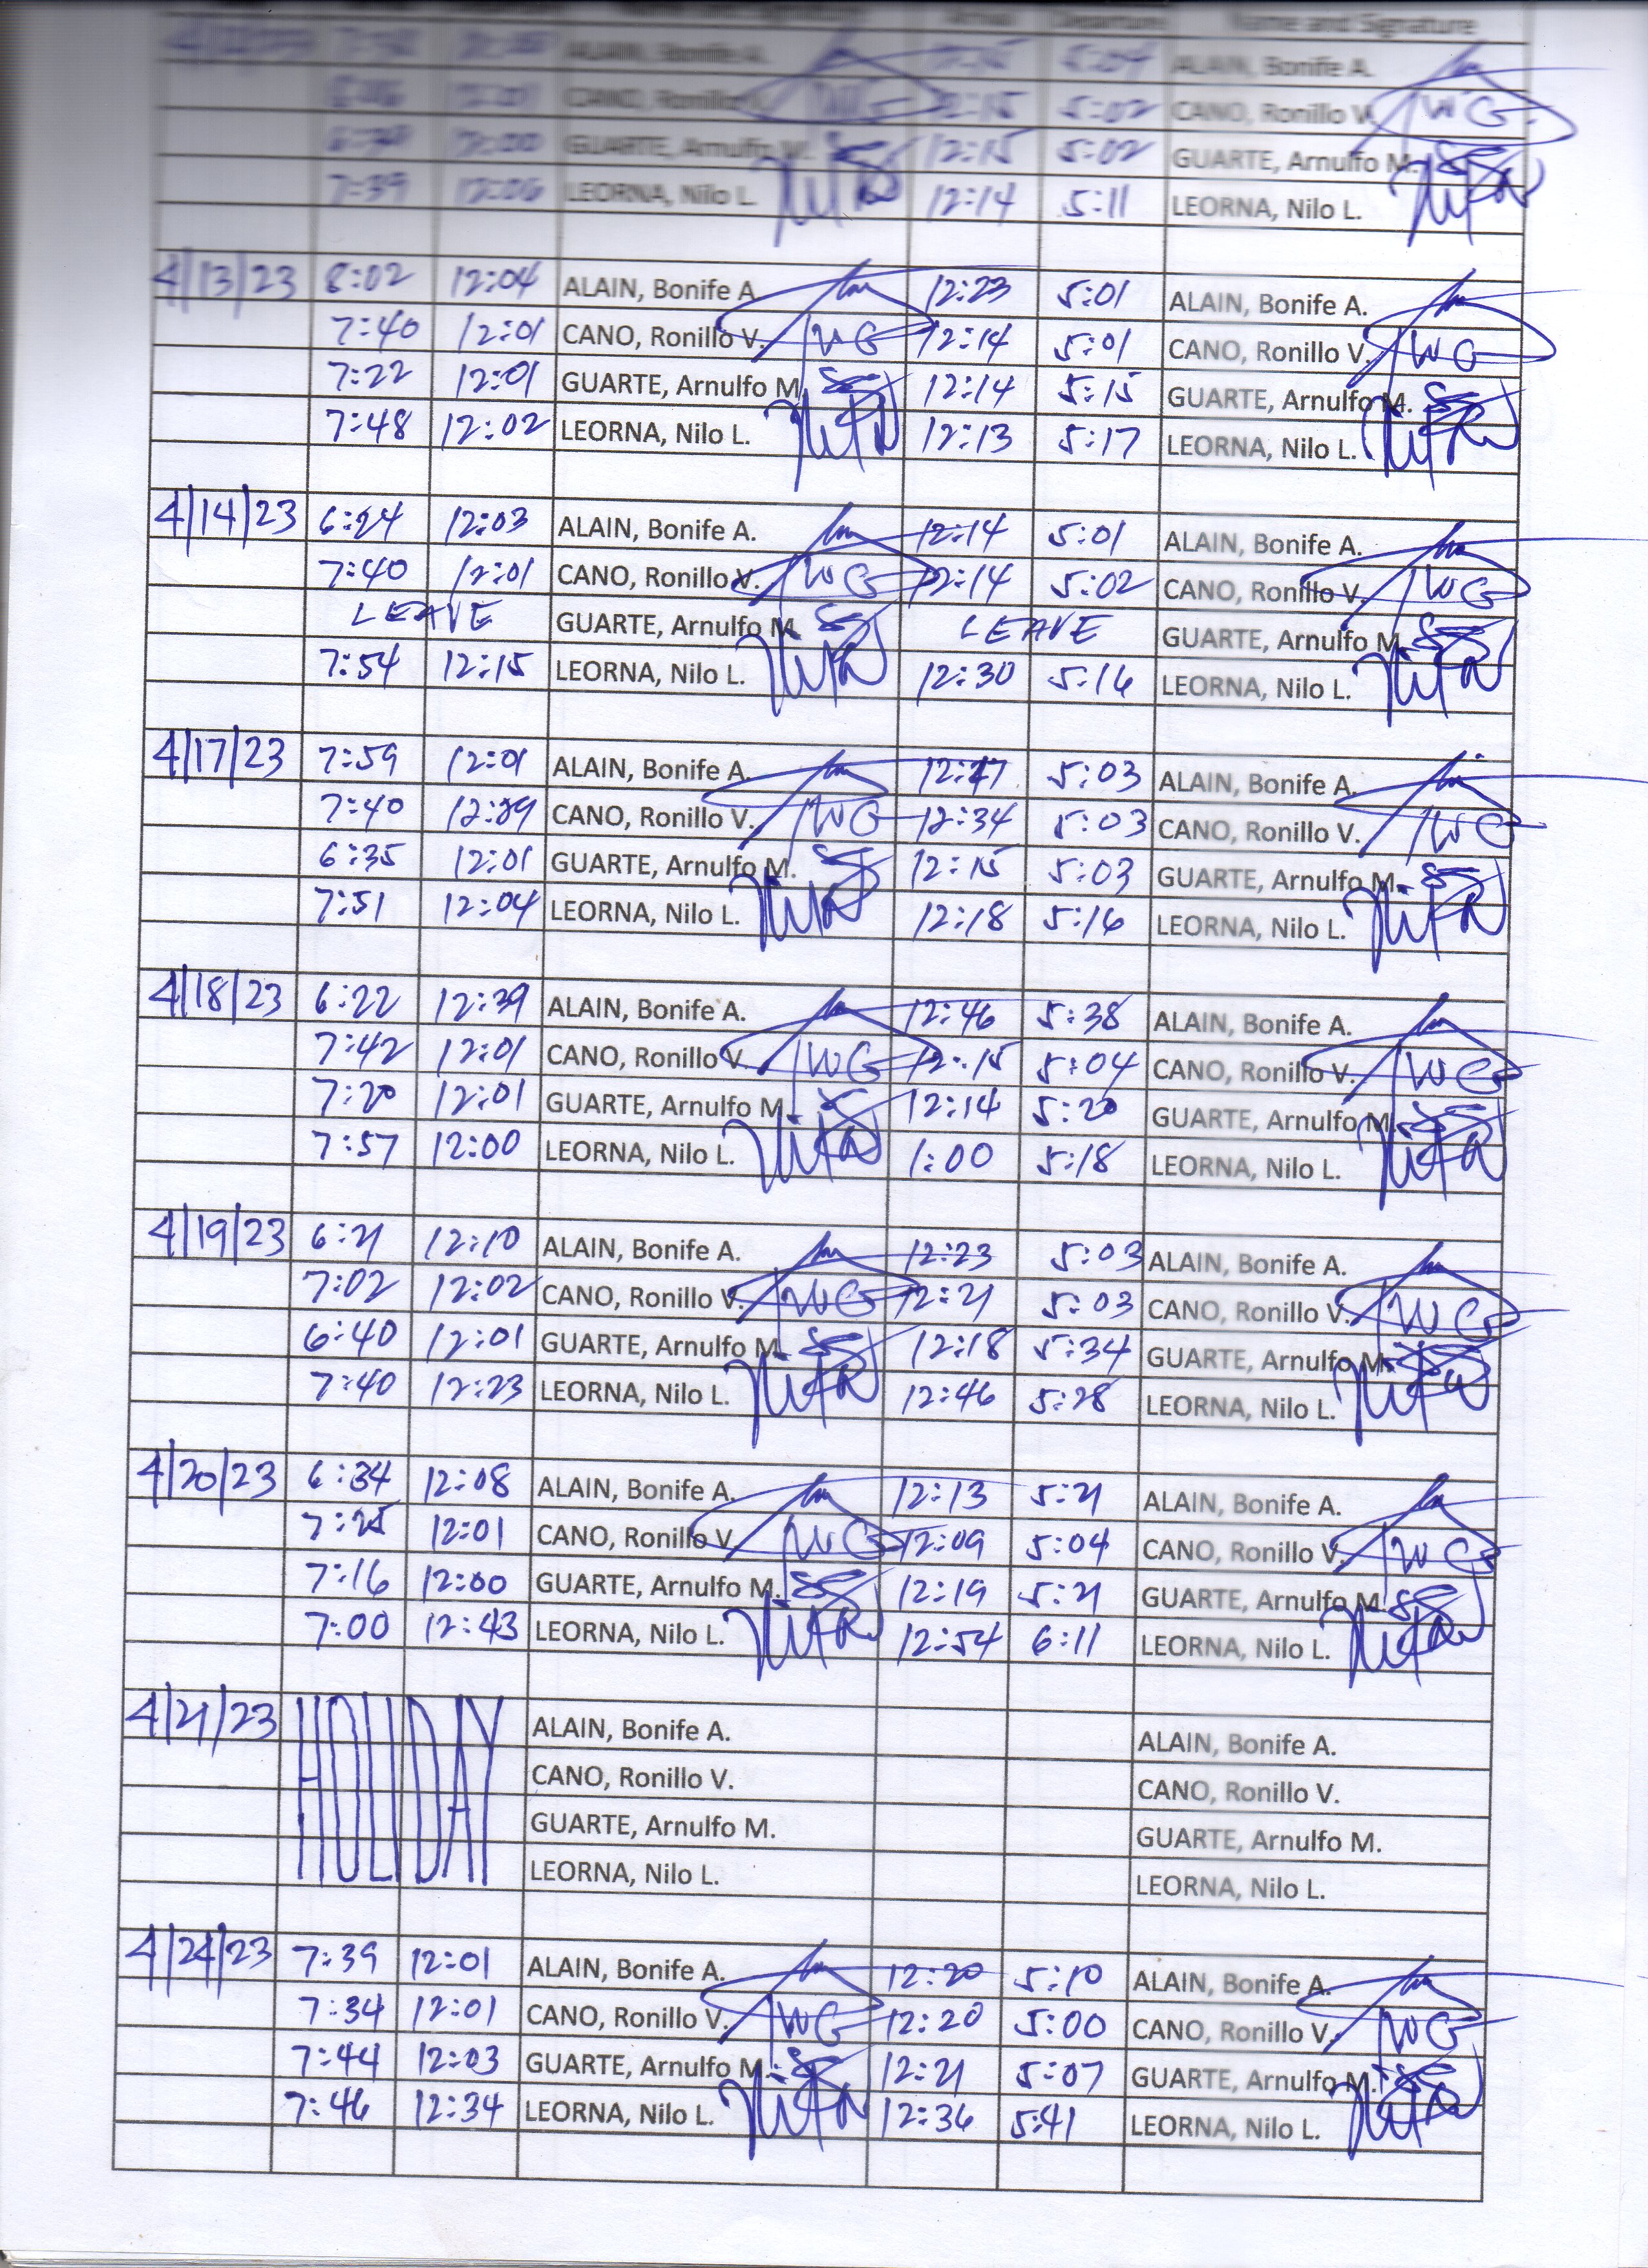 Departure Name and Signature
ALAIN, Bonife A. 5:04 ALAIN, Bonife A.
CANO, Ronillo 12:15 5:02 CANO, Ronillo V.
12:00 GUARTE, Arnulfo M. 12:15 5:02 GUARTE, Arnulfo M.
7:39 12:06 LEORNA, Nilo L. 12:14 5:11 LEORNA, Nilo L.
4/13/23 8:02 12:04 ALAIN, Bonife A. 12:23 5:01 ALAIN, Bonife A.
7:40 12:01 CANO, Ronillo V. 12:14 5:01 CANO, Ronillo V.
7:22 12:01 GUARTE, Arnulfo M. 12:14 5:15 GUARTE, Arnulfo M.
7:48 12:02 LEORNA, Nilo L. 12:13 5:17 LEORNA, Nilo L.
4/14/23 6:24 12:03 ALAIN, Bonife A. 12:14 5:01 ALAIN, Bonife A.
7:40 12:01 CANO, Ronillo V. 12:14 5:02 CANO, Ronillo V.
LEAVE GUARTE, Arnulfo M. LEAVE GUARTE, Arnulfo M.
7:54 12:15 LEORNA, Nilo L. 12:30 5:16 LEORNA, Nilo L.
4/17/23 7:59 12:01 ALAIN, Bonife A. ALAIN, Bonife A. 5:03
7:40 CANO, Ronillo V. 12:34 5:03 CANO, Ronillo V.
6:35 12:01 GUARTE, Arnulfo M. 12:15 5:03 GUARTE, Arnulfo M.
7:51 12:04 LEORNA, Nilo L. 12:18 5:16 LEORNA, Nilo L.
4/18/23 6:22 12:39 ALAIN, Bonife A. 12:46 5:38 ALAIN, Bonife A.
7:42 12:01 CANO, Ronillo V. 12:15 5:04 CANO, Ronillo V.
7:20 12:01 GUARTE, Arnulfo M. 12:14 5:20 GUARTE, Arnulfo M.
7:57 12:00 LEORNA, Nilo L. 1:00 5:18 LEORNA, Nilo L.
4/19/23 6:21 12:10 ALAIN, Bonife A. 12:23 5:03 ALAIN, Bonife A.
7:02 12:02 CANO, Ronillo V. 12:21 5:03 CANO, Ronillo V.
6:40 12:01 GUARTE, Arnulfo M. 12:18 5:34 GUARTE, Arnulfo M.
7:40 12:23 LEORNA, Nilo L. 12:46 5:28 LEORNA, Nilo L.
4/20/23 6:34 12:08 ALAIN, Bonife A. 12:13 5:21 ALAIN, Bonife A.
7:25 12:01 CANO, Ronillo V. 12:09 5:04 CANO, Ronillo V.
7:16 12:00 GUARTE, Arnulfo M. 12:19 5:21 GUARTE, Arnulfo M.
7:00 12:43 LEORNA, Nilo L. 12:54 6:11 LEORNA, Nilo L.
4/21/23 HOLIDAY ALAIN, Bonife A. ALAIN, Bonife A.
CANO, Ronillo V. CANO, Ronillo V.
GUARTE, Arnulfo M. GUARTE, Arnulfo M.
LEORNA, Nilo L. LEORNA, Nilo L.
4/24/23 7:39 12:01 ALAIN, Bonife A. 12:20 5:10 ALAIN, Bonife A.
7:34 12:01 CANO, Ronillo V. 12:20 5:00 CANO, Ronillo V.
7:44 12:03 GUARTE, Arnulfo M. 12:21 5:07 GUARTE, Arnulfo M.
7:46 12:34 LEORNA, Nilo L. 12:36 5:41 LEORNA, Nilo L.